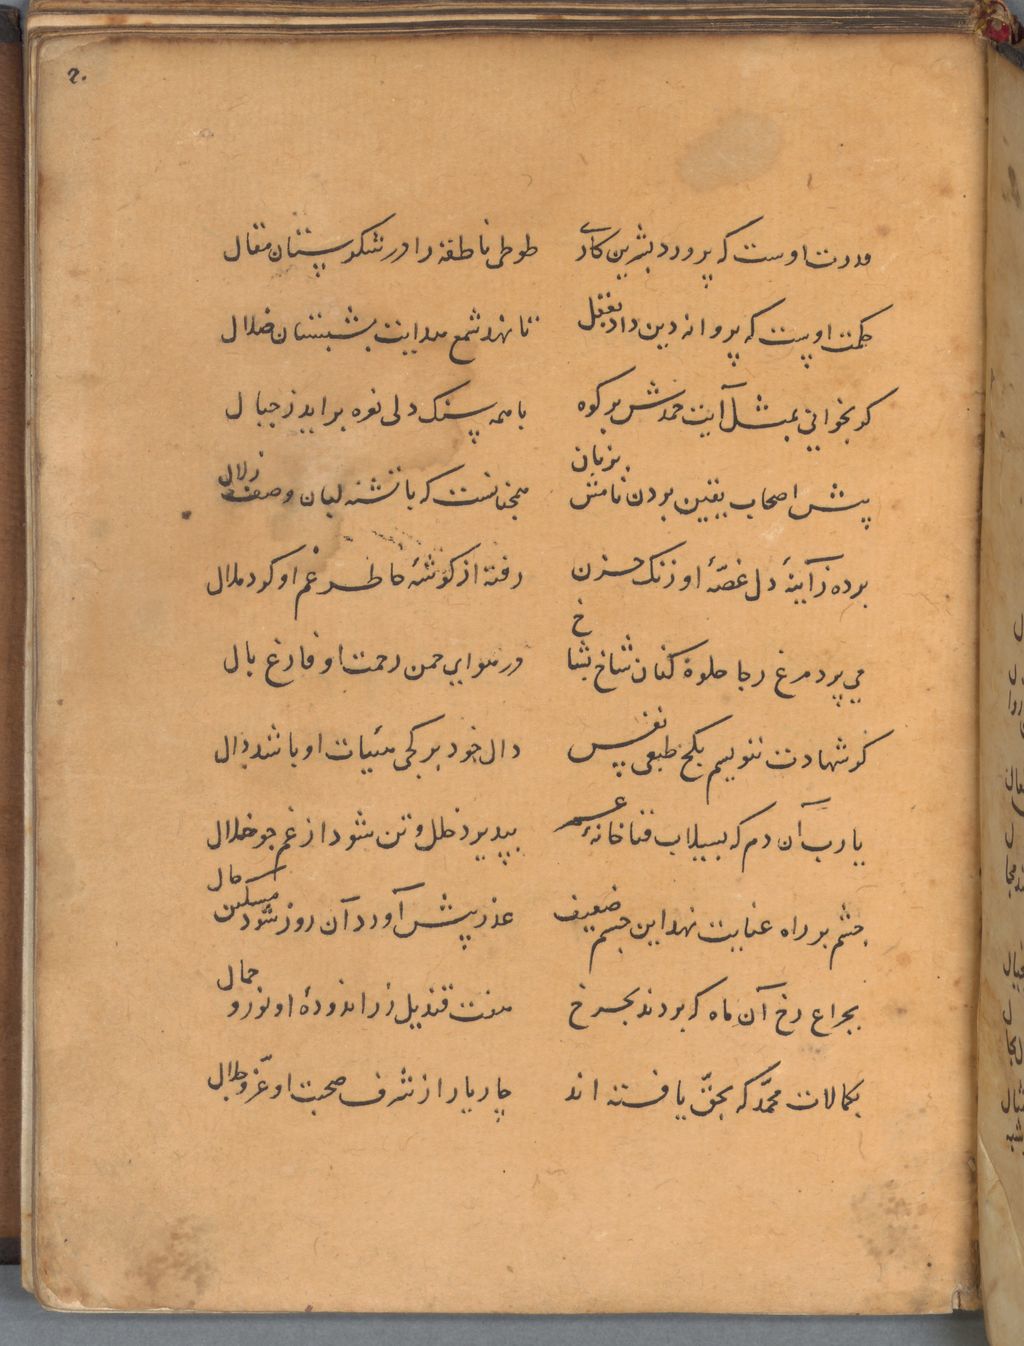 قدرت اوست که پرورد بشیرین کاری طوطی ناطقه را در شکرستان مقال
حکمت اوست که پروانه دین داد بعقل تا نهد شمع هدایت بشبستان ضلال
کر بخوانی بمثل آیت حمدش بر کوه با همه سنک دلی نعره براید ز جبال
پیش اصحاب یقین بردن نامش بزبان همچنانست که با تشنه لبان وصف زلال
برده ز آینهٔ دل غصّهٔ او زنک حزن رفته از کوشهٔ خاطر غم او کرد ملال
می پرد مرغ رجا جلوه کنان شاخ بشاخ در هوای چمن رحمت او فارغ بال
کر شهادت ننویسم بکج طبعی نفس دال خود بر کجی هئیات او باشد دال
یا رب آن دم که بسیلاب فنا خانهٔ عمر بپدیرد خلل و تن شود از غم چو خلال
چشم بر راه عنایت نهد این جسم ضعیف عذر پیش آورد آن روز شود مسکین حال
بچراغ رخ آن ماه که بردند بچرخ هفت قندیل زر اندودهٔ او نور و جمال
بکمالات محمّد که بحقّ یافته اند چار یار از شرف صحبت او عزّ و جلال